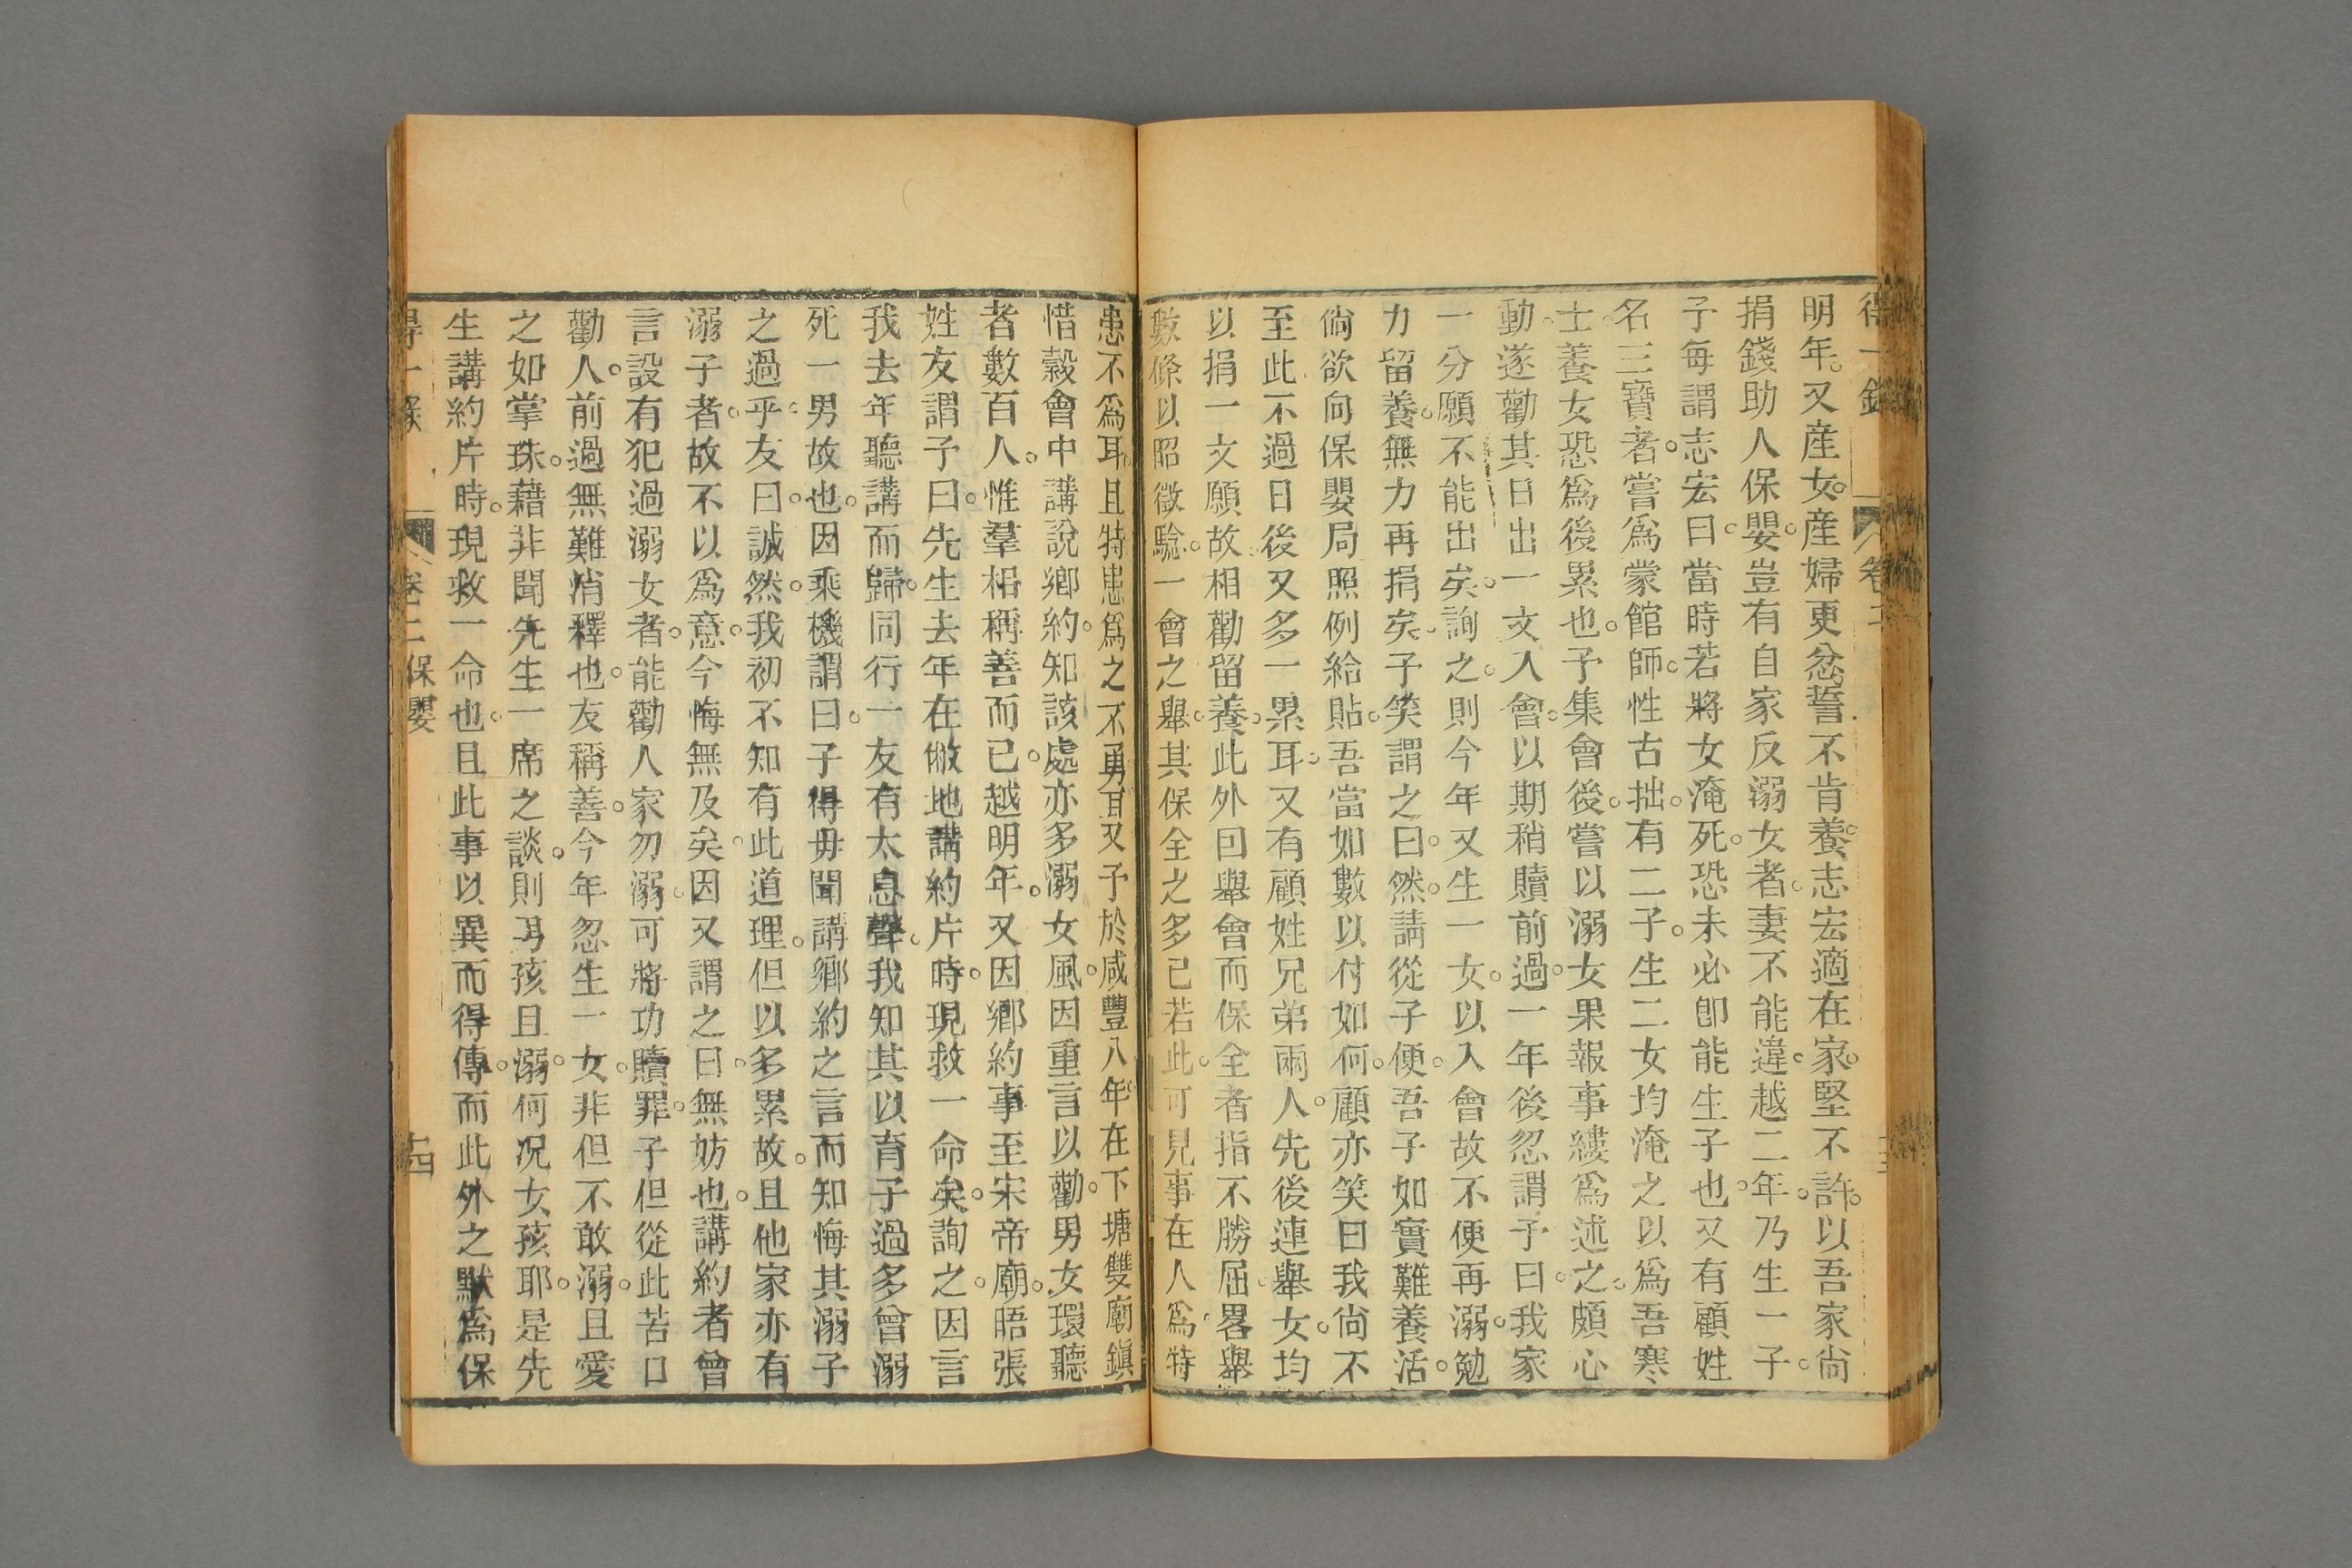 得一錄 卷二
明年。又産女。産婦更忿。誓不肯養。志宏適在家。堅不許。以吾家尙
捐錢助人保嬰。豈有自家反溺女者。妻不能違。越二年。乃生一子。
子每謂志宏曰。當時若將女淹死。恐未必卽能生子也。又有顧姓
名三寶者。嘗爲蒙館師。性古拙。有二子。生二女均淹之。以爲吾寒
士。養女恐爲後累也。予集會後。嘗以溺女果報事縷爲述之。頗心
動。遂勸其日出一文入會。以期稍贖前過。一年後忽謂予曰。我家
一分願不能出矣。詢之。則今年又生一女。以入會故不便再溺。勉
力留養。無力再捐矣。予笑謂之曰。然。請從予便。吾子如實難養活。
倘欲向保嬰局照例給貼。吾當如數以付如何。顧亦笑曰我尙不
至此。不過日後又多一累耳。又有顧姓兄弟兩人。先後連舉女。均
以捐一文願故。相勸留養。此外因舉會而保全者。指不勝屈。畧舉
數條以昭徵驗。一會之舉。其保全之多已若此。可見事在人爲。特
患不爲耳。且特患爲之不勇耳。又予於咸豐八年。在下塘雙廟鎭
惜穀會中講說鄉約。知該處亦多溺女風。因重言以勸。男女環聽
者數百人。惟羣相稱善而已。越明年。又因鄉約事至宋帝廟。晤張
姓友謂予曰。先生去年在敝地講約片時。現救一命矣。詢之。因言
我去年聽講而歸。同行一友有太息聲。我知其以育子過多曾溺
死一男故也。因乘機謂曰。子得毋聞講鄉約之言而知悔其溺子
之過乎。友曰。誠然。我初不知有此道理。但以多累故。且他家亦有
溺子者。故不以爲意。今悔無及矣。因又謂之曰。無妨也。講約者曾
言設有犯過溺女者。能勸人家勿溺。可將功贖罪。子但從此苦口
勸人。前過無難消釋也。友稱善。今年忽生一女。非但不敢溺。且愛
之如掌珠。藉非聞先生一席之談。則男孩且溺。何况女孩耶。是先
生講約片時。現救一命也。且此事以異而得傳。而此外之默爲保
得一錄 卷二 保嬰 十四